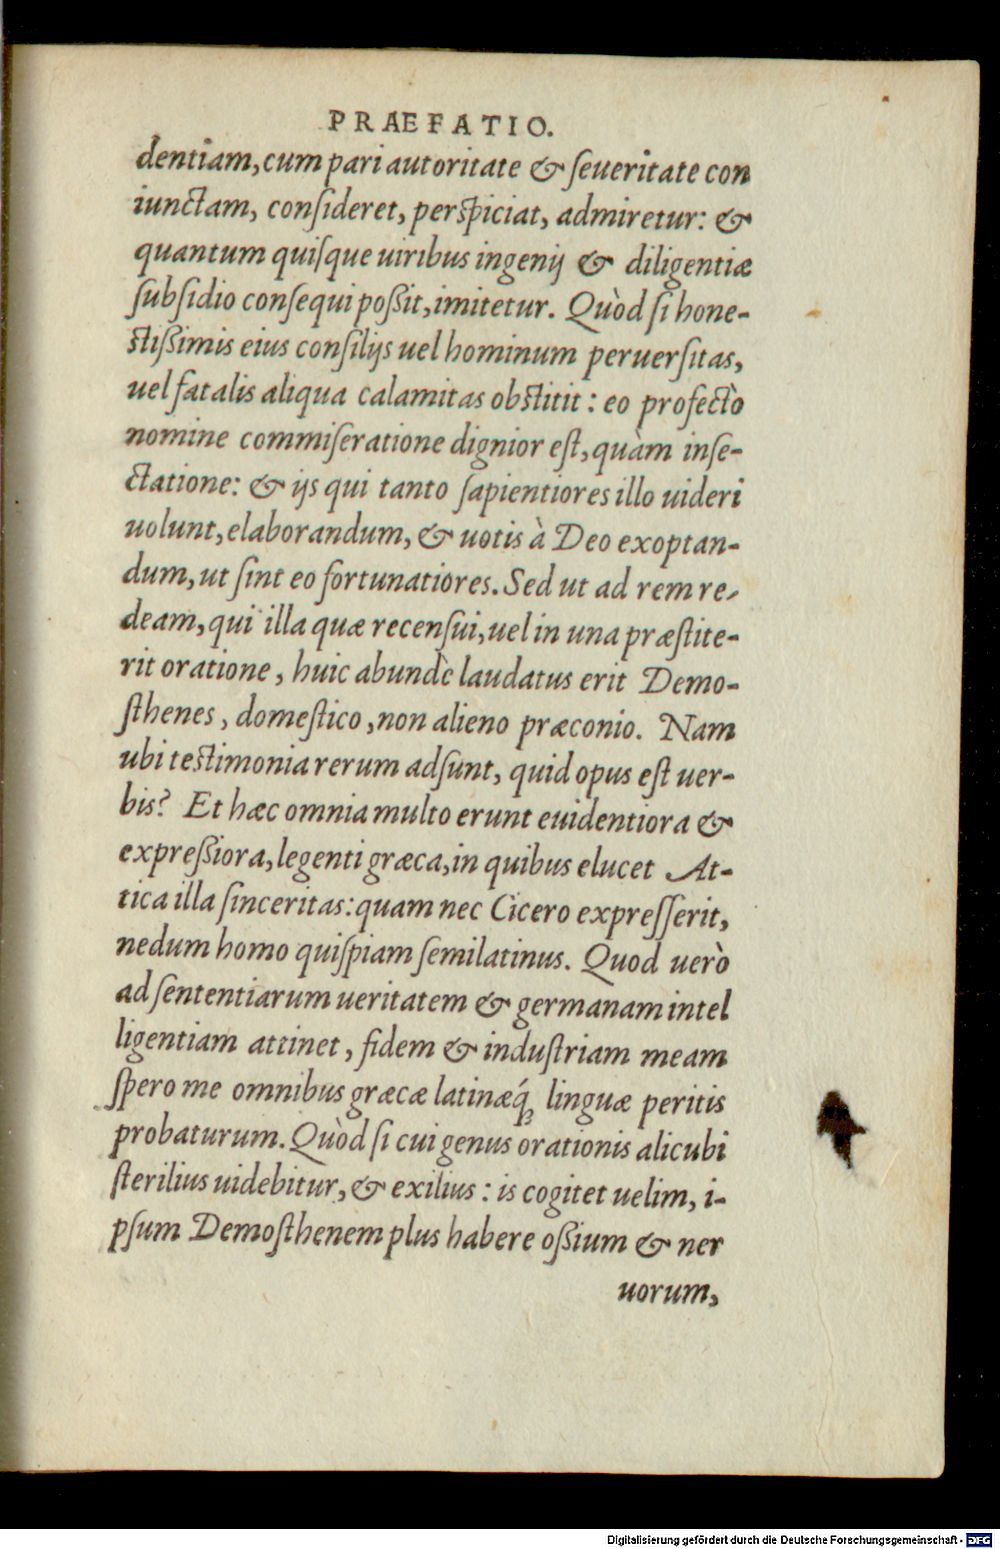 PRAEFATIO.
dentiam, cum pari autoritate & ſeueritate con
iunctam, conſideret, perſpiciat, admiretur: &
quantum quiſque uiribus ingenij & diligentiæ
ſubſidio conſequi poßit, imitetur. Quòd ſi hone-
ſtißimis eius conſilijs uel hominum peruerſitas,
uel fatalis aliqua calamitas obſtitit: eo profectò
nomine commiſeratione dignior eſt, quàm inſe-
ctatione: & ijs qui tanto ſapientiores illo uideri
uolunt, elaborandum, & uotis à Deo exoptan-
dum, ut ſint eo fortunatiores. Sed ut ad rem re-
deam, qui illa quæ recenſui, uel in una præſtite-
rit oratione, huic abundè laudatus erit Demo-
ſthenes, domeſtico, non alieno præconio. Nam
ubi teſtimonia rerum adſunt, quid opus eſt uer-
bis? Et hæc omnia multo erunt euidentiora &
expreßiora, legenti græca, in quibus elucet At-
tica illa ſinceritas: quam nec Cicero expreſſerit,
nedum homo quiſpiam ſemilatinus. Quod uerò
ad ſententiarum ueritatem & germanam intel
ligentiam attinet, fidem & induſtriam meam
ſpero me omnibus græcæ latinæq́ꝫ linguæ peritis
probaturum. Quòd ſi cui genus orationis alicubi
ſterilius uidebitur, & exilius: is cogitet uelim, i-
pſum Demoſthenem plus habere oßium & ner
uorum,
Digitalisierung gefördert durch die Deutsche Forschungsgemeinschaft - DFG